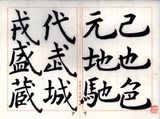 己也色
元地馳
代武城
戎盛蔵